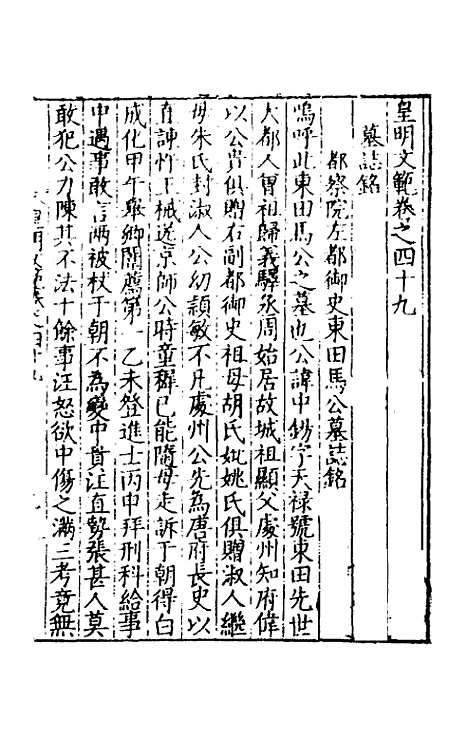 皇明文範卷之四十九
墓誌銘
都察院左都御史東田馬公墓誌銘
嗚呼此東田馬公之墓也公諱中錫字天祿號東田先世
大都人曾祖歸義驛丞周始居故城祖顯父處州知府偉
以公貴俱贈右副都御史祖母胡氏妣姚氏俱贈淑人繼
母朱氏封淑人公幼穎敏不凡處州公先為唐府長史以
直諫忤王械送京師公時童稺已能隨母走訴于朝得白
成化甲午舉鄉闈薦第一乙未登進士丙申拜刑科給事
中遇事敢言兩被杖于朝不為變中貴汪直勢張甚人莫
敢犯公力陳其不法十餘事汪怒欲中傷之滿三考竟無